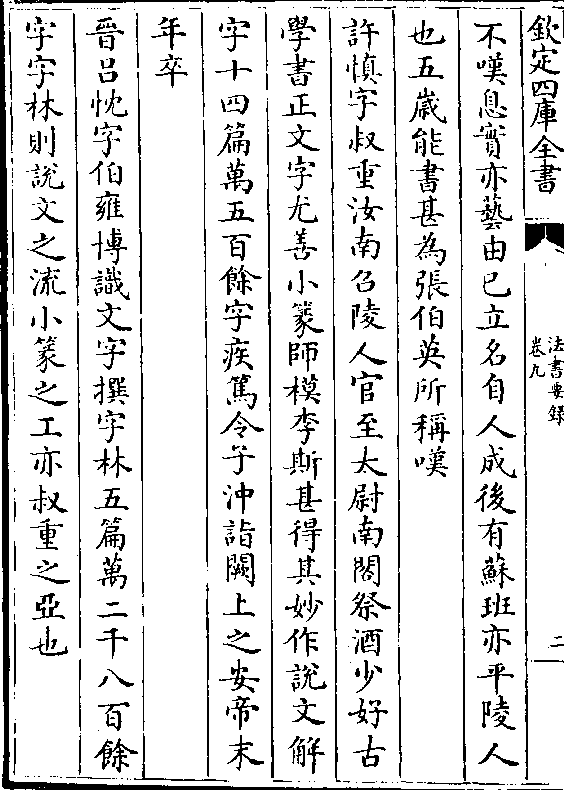 欽定四庫全書
法書要録
卷九
二
不嘆息實亦藝由已立名自人成後有蘇班亦平陵人
也五歲能書甚為張伯英所稱嘆
許慎字叔重汝南召陵人官至太尉南閣祭酒少好古
學書正文字尤善小篆師模李斯甚得其妙作說文解
字十四篇萬五百餘字疾篤令子沖詣闕上之安帝末
年卒
晉吕忱字伯雍博識文字撰字林五篇萬二千八百餘
字字林則說文之流小篆之工亦叔重之亞也